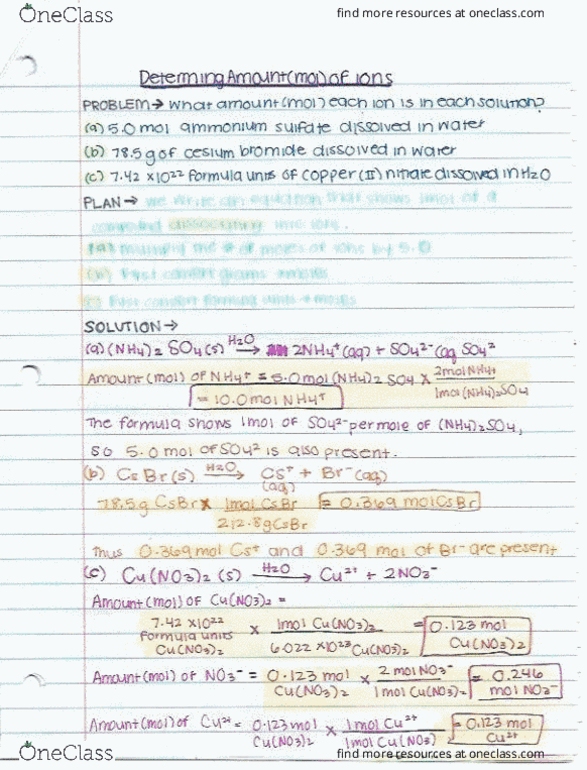 OneClass
find more resources at oneclass.com
Determing Amount (mol) of ions
PROBLEM → What amount (mol) each ion is in each solution?
(a) 5.0 mol ammonium sulfate dissolved in water
(b) 78.5g of cesium bromide dissolved in water
(c) 7.42 x10²² formula units of copper (II) nitrate dissolved in H2O
PLAN → we write an equation that shows 1mol of a
compound dissociating into ions.
(a) multiply the # of moles of ions by 5.0
(b) First convert grams → moles
(c) First convert formula units → moles
SOLUTION →
(a) (NH4)2 SO4 (s) H2O → 2NH4⁺ (aq) + SO4²⁻ (aq SO4²
Amount (mol) of NH4⁺ = 5.0 mol (NH4)2 SO4 x 2mol NH4⁺ / 1mol (NH4)2SO4
= 10.0 mol NH4⁺
The formula shows 1mol of SO4²⁻ per mole of (NH4)2SO4,
so 5.0 mol of SO4² is also present.
(b) CsBr (s) H2O → Cs⁺ (aq) + Br⁻ (aq)
78.5g CsBr x 1mol CsBr / 212.8g CsBr = 0.369 mol CsBr
Thus 0.369 mol Cs⁺ and 0.369 mol of Br⁻ are present
(c) Cu(NO3)2 (s) H2O → Cu²⁺ + 2NO3⁻
Amount (mol) of Cu(NO3)2 =
7.42 x10²² formula units Cu(NO3)2 x 1mol Cu(NO3)2 / 6.022 x10²³ Cu(NO3)2 = 0.123 mol Cu(NO3)2
Amount (mol) of NO3⁻ = 0.123 mol Cu(NO3)2 x 2 mol NO3⁻ / 1mol Cu(NO3)2 = 0.246 mol NO3⁻
Amount (mol) of Cu²⁺ = 0.123 mol Cu(NO3)2 x 1mol Cu²⁺ / 1mol Cu(NO3) = 0.123 mol Cu²⁺
OneClass
find more resources at oneclass.com